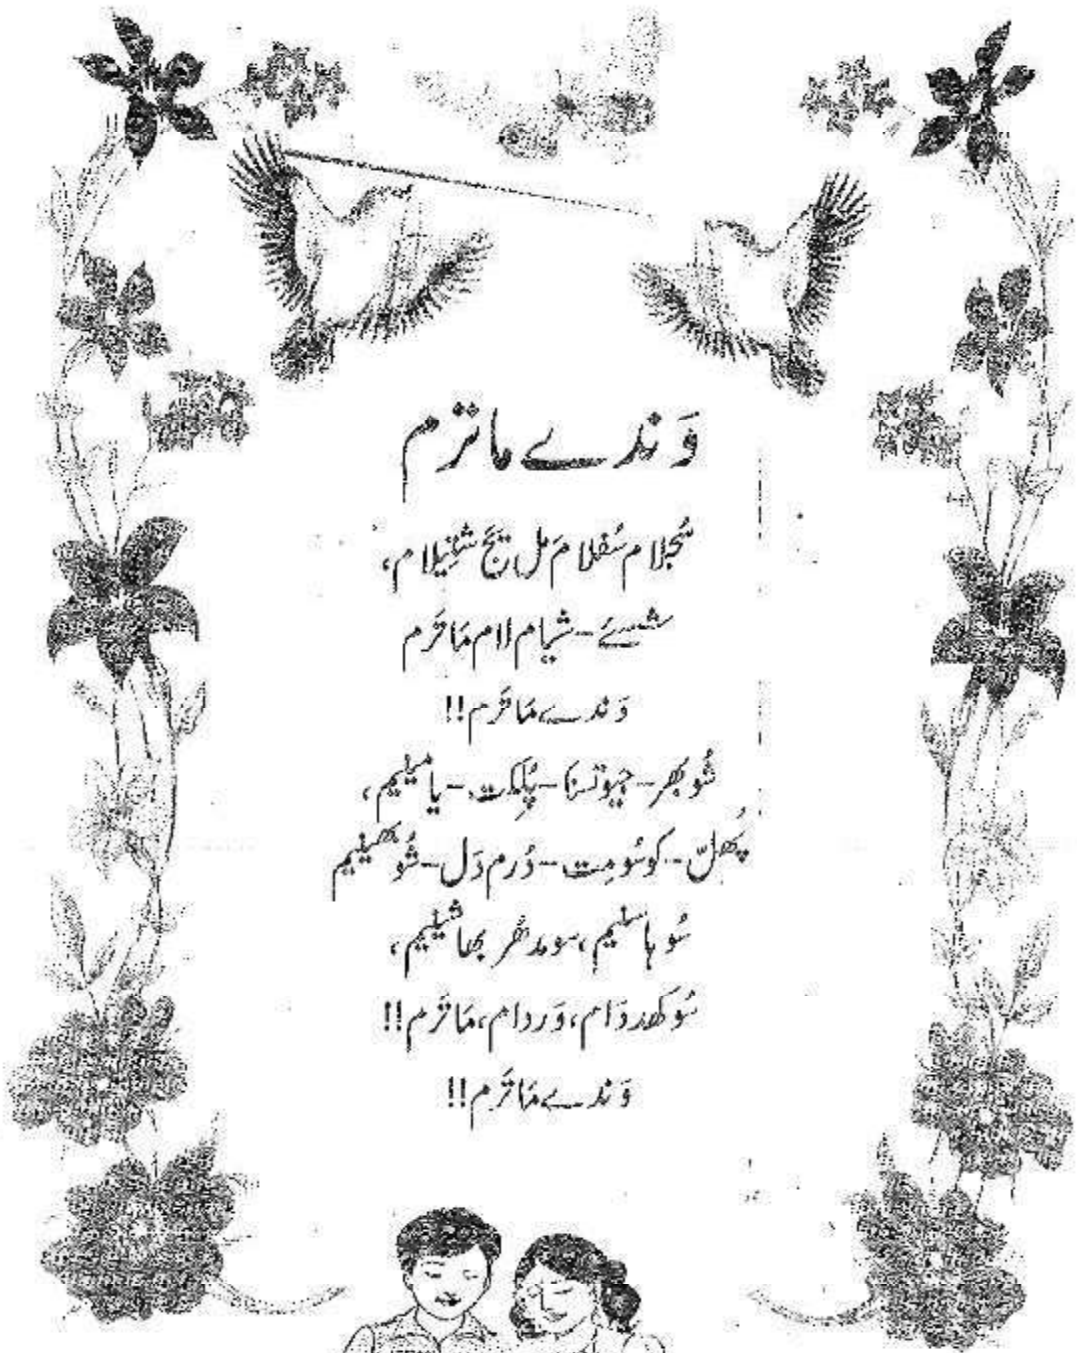 وَندے ماترم
سُجلام سُفلام مَل یَج شنیلام،
شسئے - شیام لام مَاترَم
وَندے مَاترَم!!
شُوبھر - جیوتسنا - پُلکِت - یامینیم،
پُھلّ - کوسُومِت - دُرم دَل - شُوبھینیم
سُوہاسنیم، سومدھُر بھاشینیم،
سُوکھدام، وَردام، مَاترَم!!
وَندے مَاترَم!!